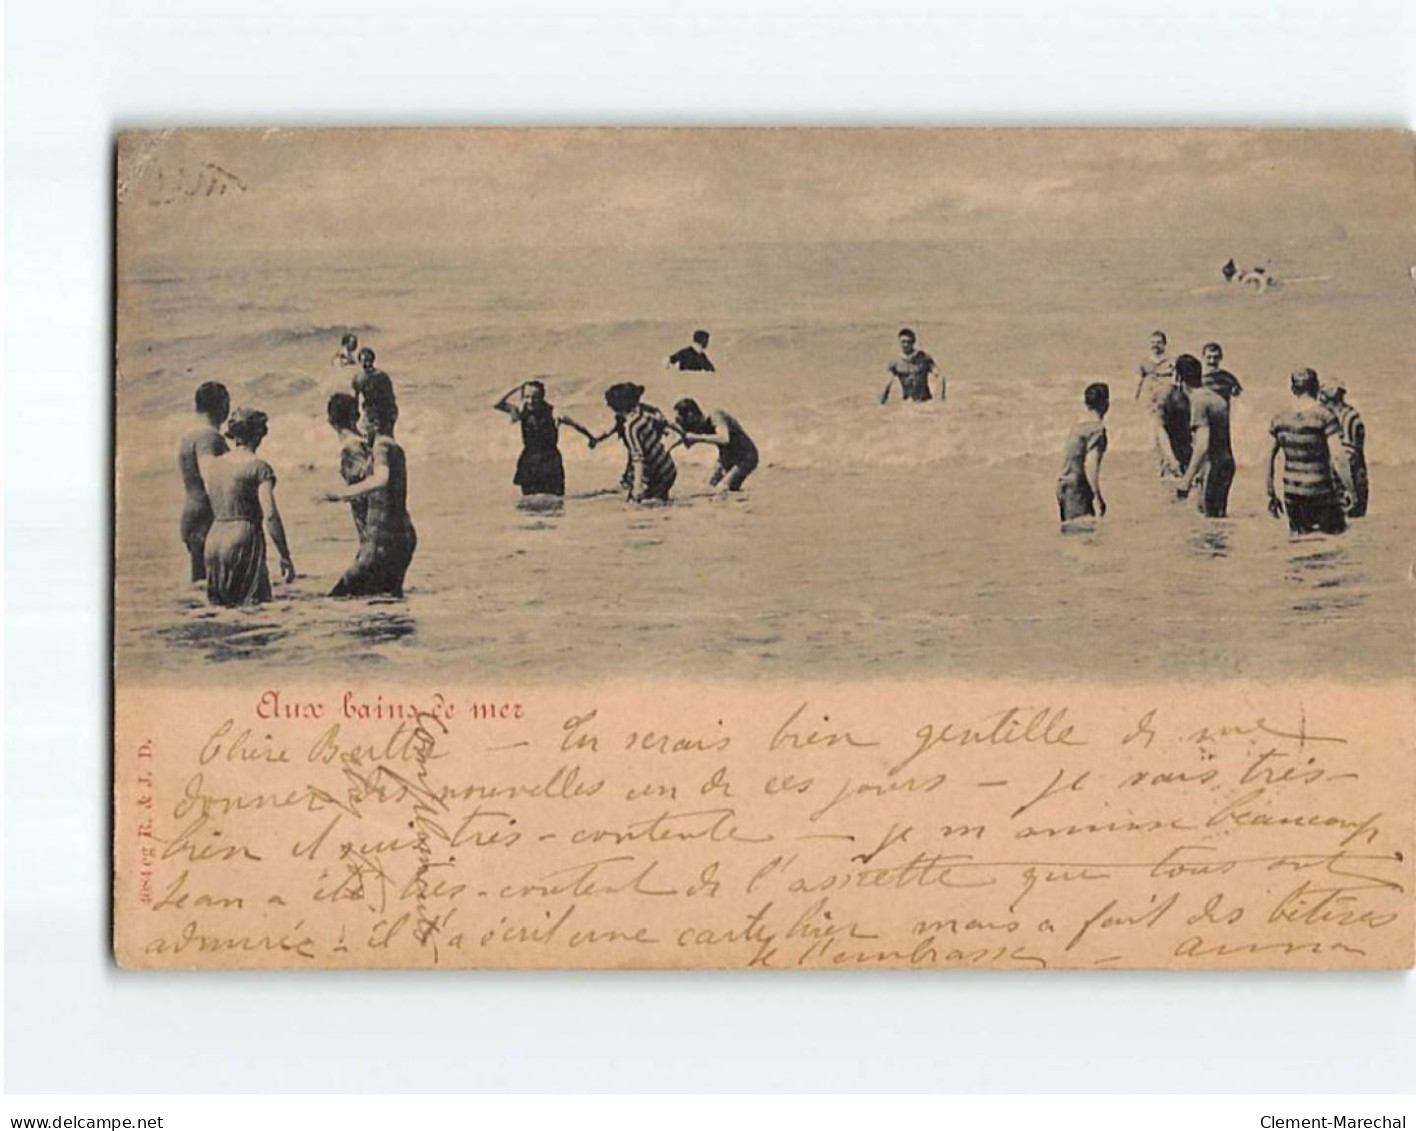 Aux bains de mer
4084 eg R. & J. D.
Chère Berthe – Tu serais bien gentille de me
donner des nouvelles un de ces jours – je vais très-
bien et suis très-contente – je m'amuse beaucoup
Jean a été très-content de l'assiette que tous ont
admirée – il t'a écrit une carte hier mais a fait des bêtises
Je t'embrasse – anna
Compliments
www.delcampe.net
Clement-Marechal